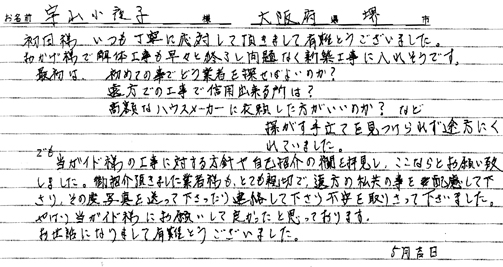 お名前 宇山小夜子 様 大阪府 県 堺 市
初回様、いつも丁寧に応対して頂きまして有難とうございました。
おかげ様で解体工事も早々と終了し問題なく新築工事に入れそうです。
最初は、初めての事でどう業者を探せばよいのか?
遠方での工事で信用出来る所は?
高額なハウスメーカーに依頼した方がいいのか? など
探がす手立てを見つけられず途方にく
れていました。
でも、当ガイド様の工事に対する方針や自己紹介の欄を拝見し、ここならとお願い致
しました。御紹介頂きました業者様も、とても親切で、遠方の私共の事を配慮して下
さり、その度、写真を送って下さったり連絡して下さり不安を取りさって下さいました。
やはり当ガイド様にお願いして良かったと思っております。
お世話になりまして有難とうございました。
5月吉日